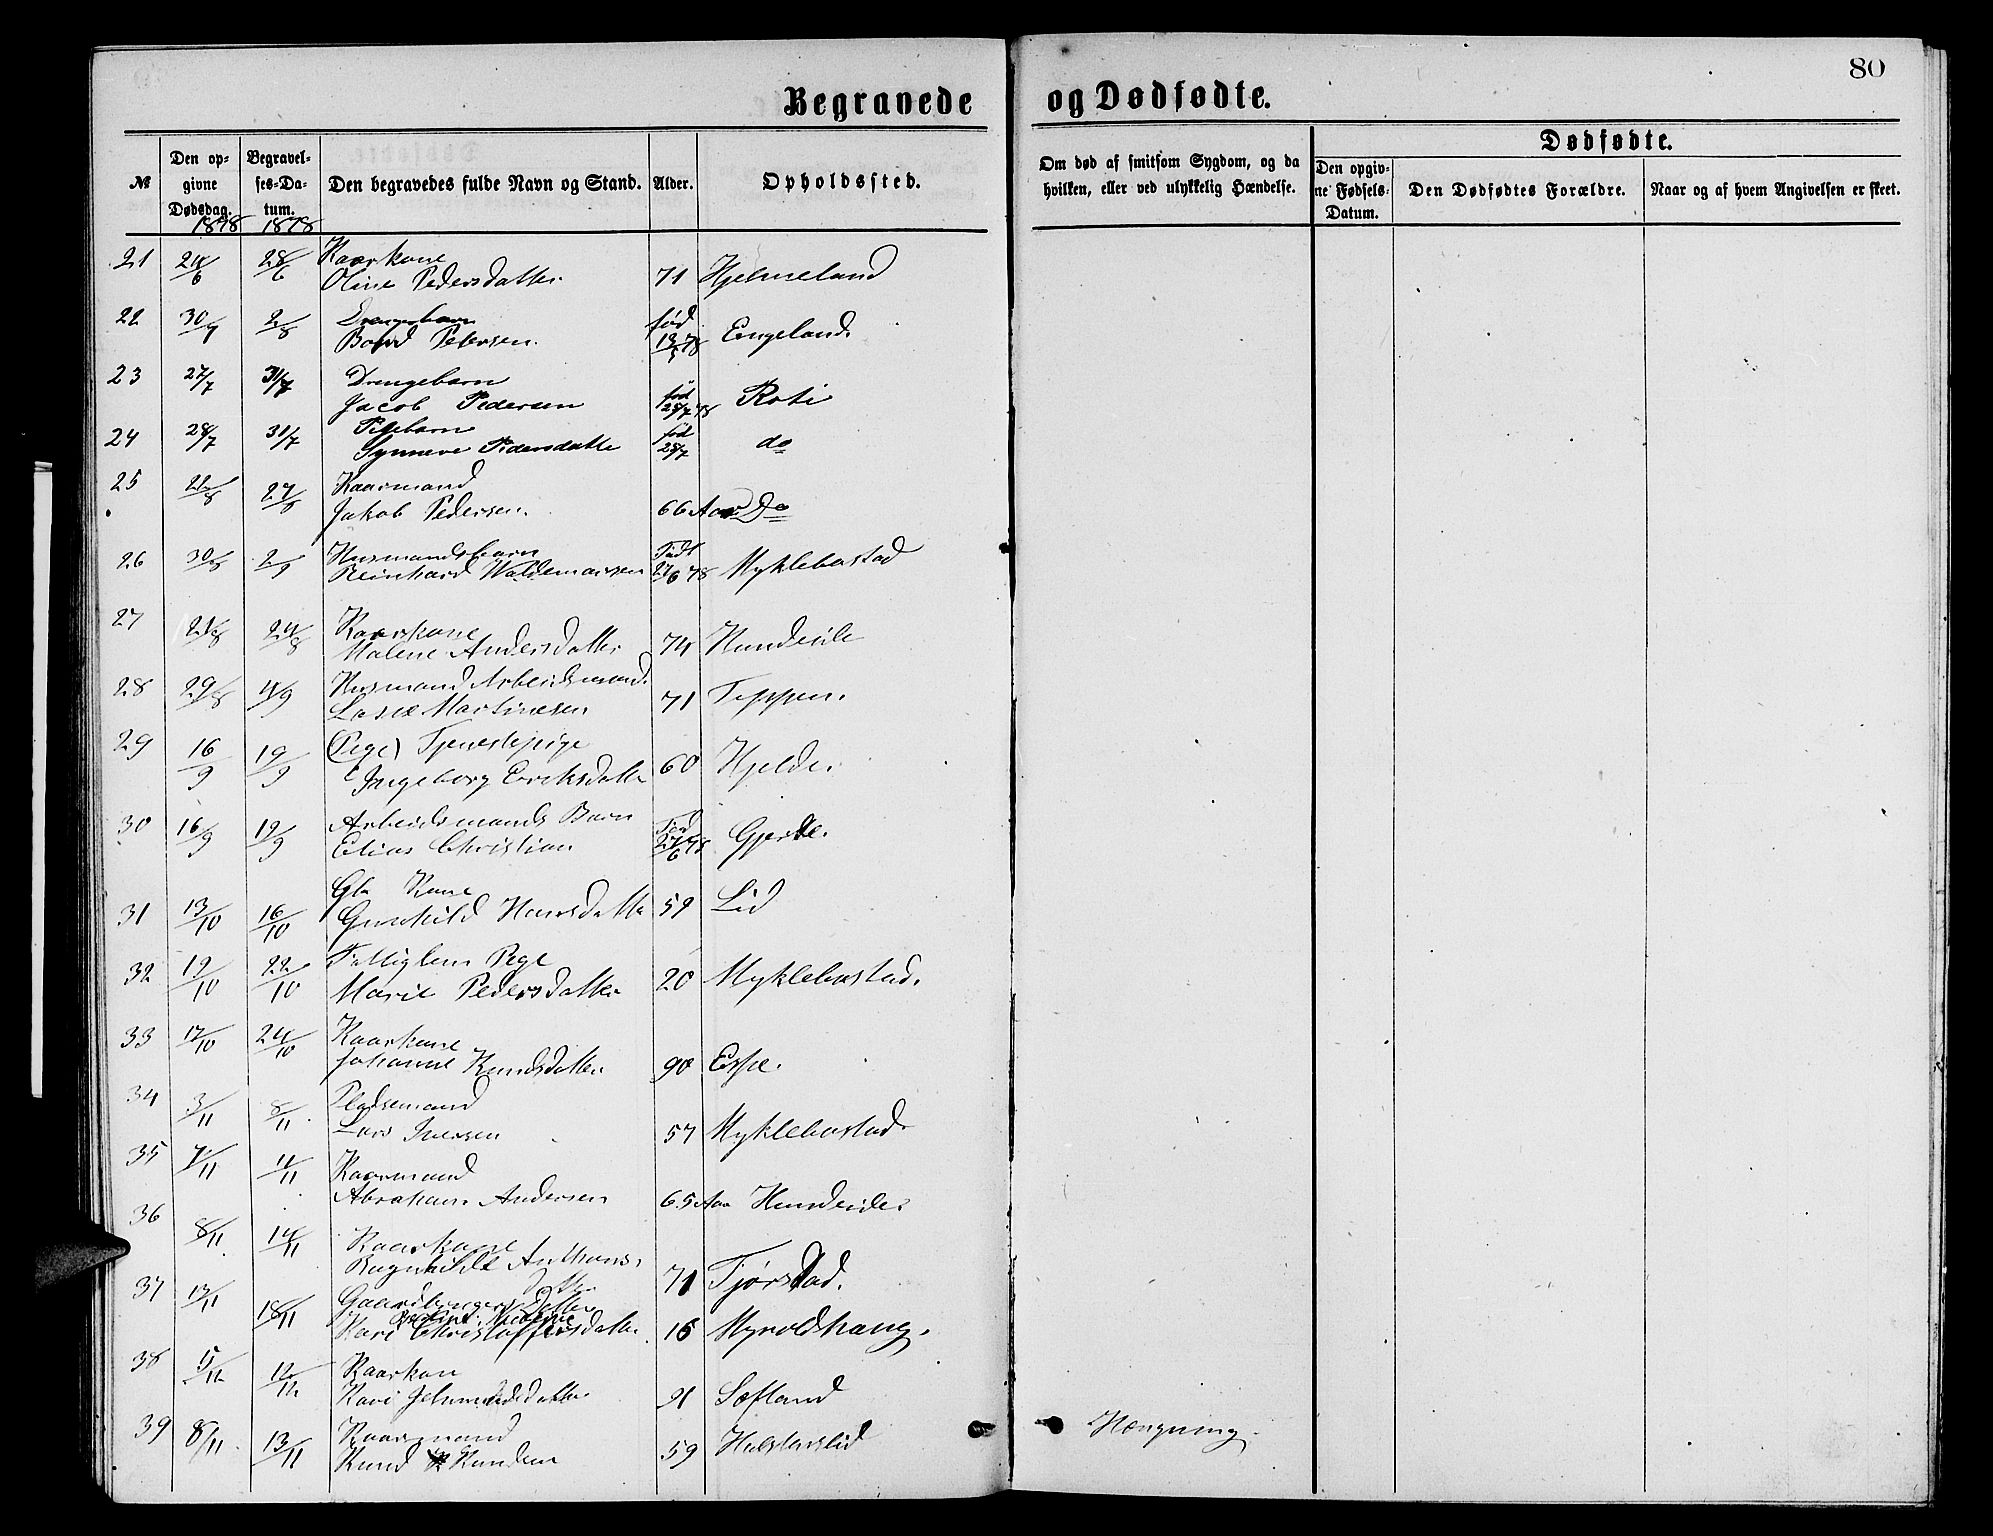 80
Begravede og Dødfødte.
№
Den opgivne Dødsdag.
Begravelses-Datum.
Den begravedes fulde Navn og Stand.
Alder.
Opholdssted.
Om død af smitsom Sygdom, og da hvilken, eller ved ulykkelig Hændelse.
Dødfødte.
Den opgivne Fødsels-Datum.
Den Dødfødtes Forældre.
Naar og af hvem Angivelsen er skeet.
1878 1878
21 24/6 28/6 Kaarkone
Oline Pedersdatter 71 Hjelmeland
22 30/7 2/8 Drengebarn fød
Petersen. Engeland.
23 27/7 31/7 Drengebarn
Jacob Pedersen fød 25/7 78 Roti
24 28/7 31/7 Pigebarn
Synneve Pedersdatte fød 25/7 do
25 22/8 27/8 Kaarmand
Jakob Pedersen. 66 Aar Do
26 30/8 2/9 Husmandsbarn Født
Reinhard Waldemarsen 27/6 78 Myklebostad
27 21/8 24/8 Kaarskone
Malene Andersdatter 74 Hundeide
28 29/8 4/9 Husmand Arbeidsmand.
Lasse Martinesen 71 Teppen.
29 16/9 19/9 (Pege) Tjenestepige
Ingeborg Eriksdatte 60 Hjelde.
30 16/9 19/9 Arbeidsmands Barn Fød
Elias Christian 27/6 78 Gjerde.
31 13/10 16/10 Gb Kone
Gunhild Hansdatte 59 Lid
32 19/10 22/10 Fattiglem Pege
Marie Pedersdatter 20 Myklebostad.
33 17/10 24/10 Kaarkone
Johanne Knudsdatter 90 Espe.
34 3/11 8/11 Pladsemand
Lars Iversen 57 Myklebostad.
35 7/11 11/11 Kaarmand
Abraham Andersen 65 Aar Hundeide.
36 8/11 14/11 Kaarkone
Ragnhilde Anthons-
datter 71 Tjørstad.
37 13/11 18/11 Gaardbrugers Datter
Kari Christoffersdatter 16 Myroldhaug.
38 5/12 12/12 Kaarkon
Kari 91 Sætland
39 8/11 13/11 Kaarmand
Knud Knudsen 59 Hængning.